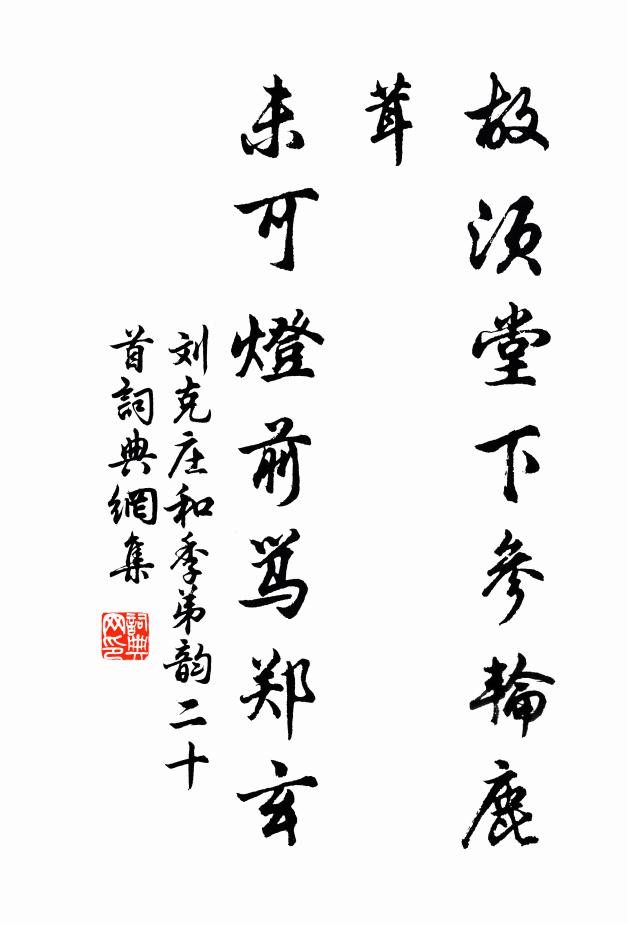 故須堂下參輪鹿
茸
未可燈前骂郑玄
刘克庄和季弟韵二十
首詞典網集
詞典
网印